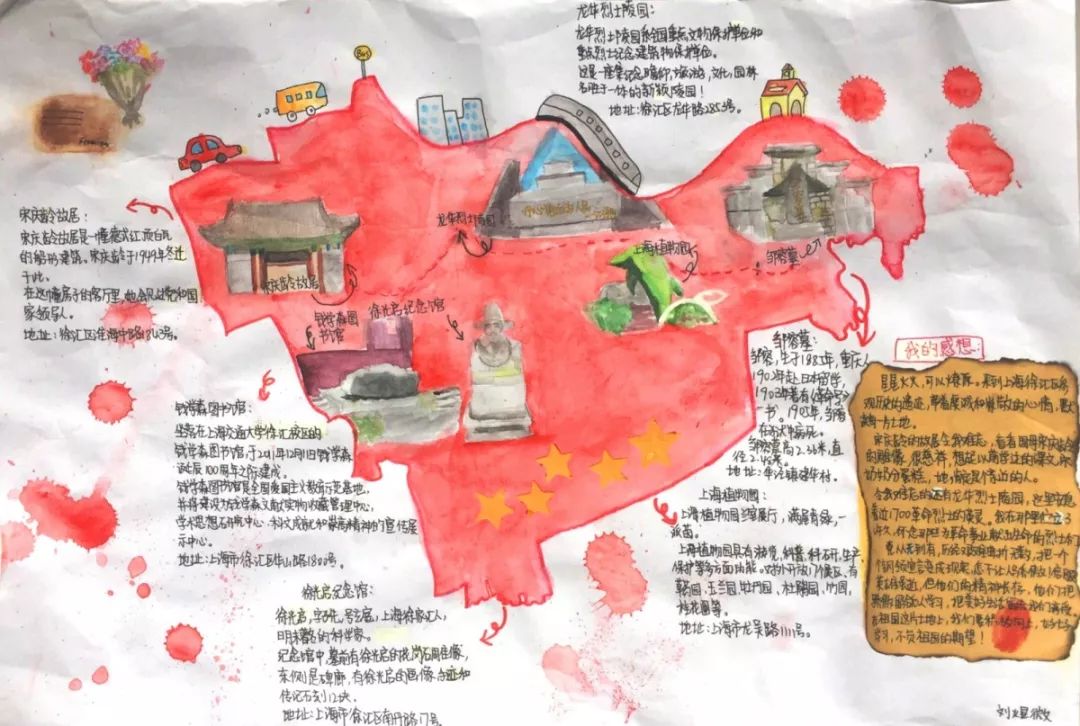 龙华烈士陵园：
龙华烈士陵园系全国重点文物保护单位和
重点烈士纪念建筑物保护单位。
这是一座集纪念瞻仰，旅游，文化，园林
名胜于一体的新颖陵园！
地址：徐汇区龙华路2853号。
Bus
宋庆龄故居：
宋庆龄故居是一幢德式红顶白瓦
的船形建筑。宋庆龄于1949年冬迁
于此。
在这幢房子的客厅里，她会见过党和国
家领导人。
地址：徐汇区淮海中路1843号。
宋庆龄故居
龙华烈士陵园
上海植物园
邹容墓
钱学森图
书馆
徐光启纪念馆
钱学森图书馆：
坐落在上海交通大学徐汇校区的
钱学森图书馆，于2011年12月11日钱学森
诞辰100周年之际建成。
钱学森图书馆是全国爱国主义教育示范基地，
并将建设为钱学森文献实物收藏管理中心，
学术思想研究中心，科学成就和崇高精神的宣传展
示中心。
地址：上海市徐汇区华山路1800号。
徐光启纪念馆：
徐光启，字子先，号玄扈，上海徐家汇人，
明末著名的科学家。
纪念馆中，墓前有徐光启的花岗石雕像，
东侧是碑廊，有徐光启的画像、手迹和
传记石刻12块。
地址：上海市徐汇区南丹路17号。
邹容墓：
邹容，生于1885年，重庆人
1902年赴日本留学，
1903年著有《革命军》
一书。1905年，邹容
在狱中病死。
直
径2.45米。
地址：华泾镇建华村。
上海植物园：
上海植物园
派苗。
上海植物园具有游览，科普，科研，生产
保护等多方面功能。
玉兰园，牡丹园，杜鹃园，竹园，
桂花园等。
地址：上海市龙吴路1111号。
我的感想：
星星火火，可以燎原。来到上海徐汇区参
观历史的遗迹，带着虔诚和崇敬的心情，
这一片土地。
宋庆龄的故居令我难忘，看着国母宋庆龄
的雕像，很慈祥，想起
令我难忘的还有龙华烈士陵园，这里安息
着近1700革命烈士的英灵。我在那里伫立了
许久，怀念那些为革命事业献出生命的烈士们
在祖国这片土地上，我们要积极向上，好好
学习，不负祖国的期望！